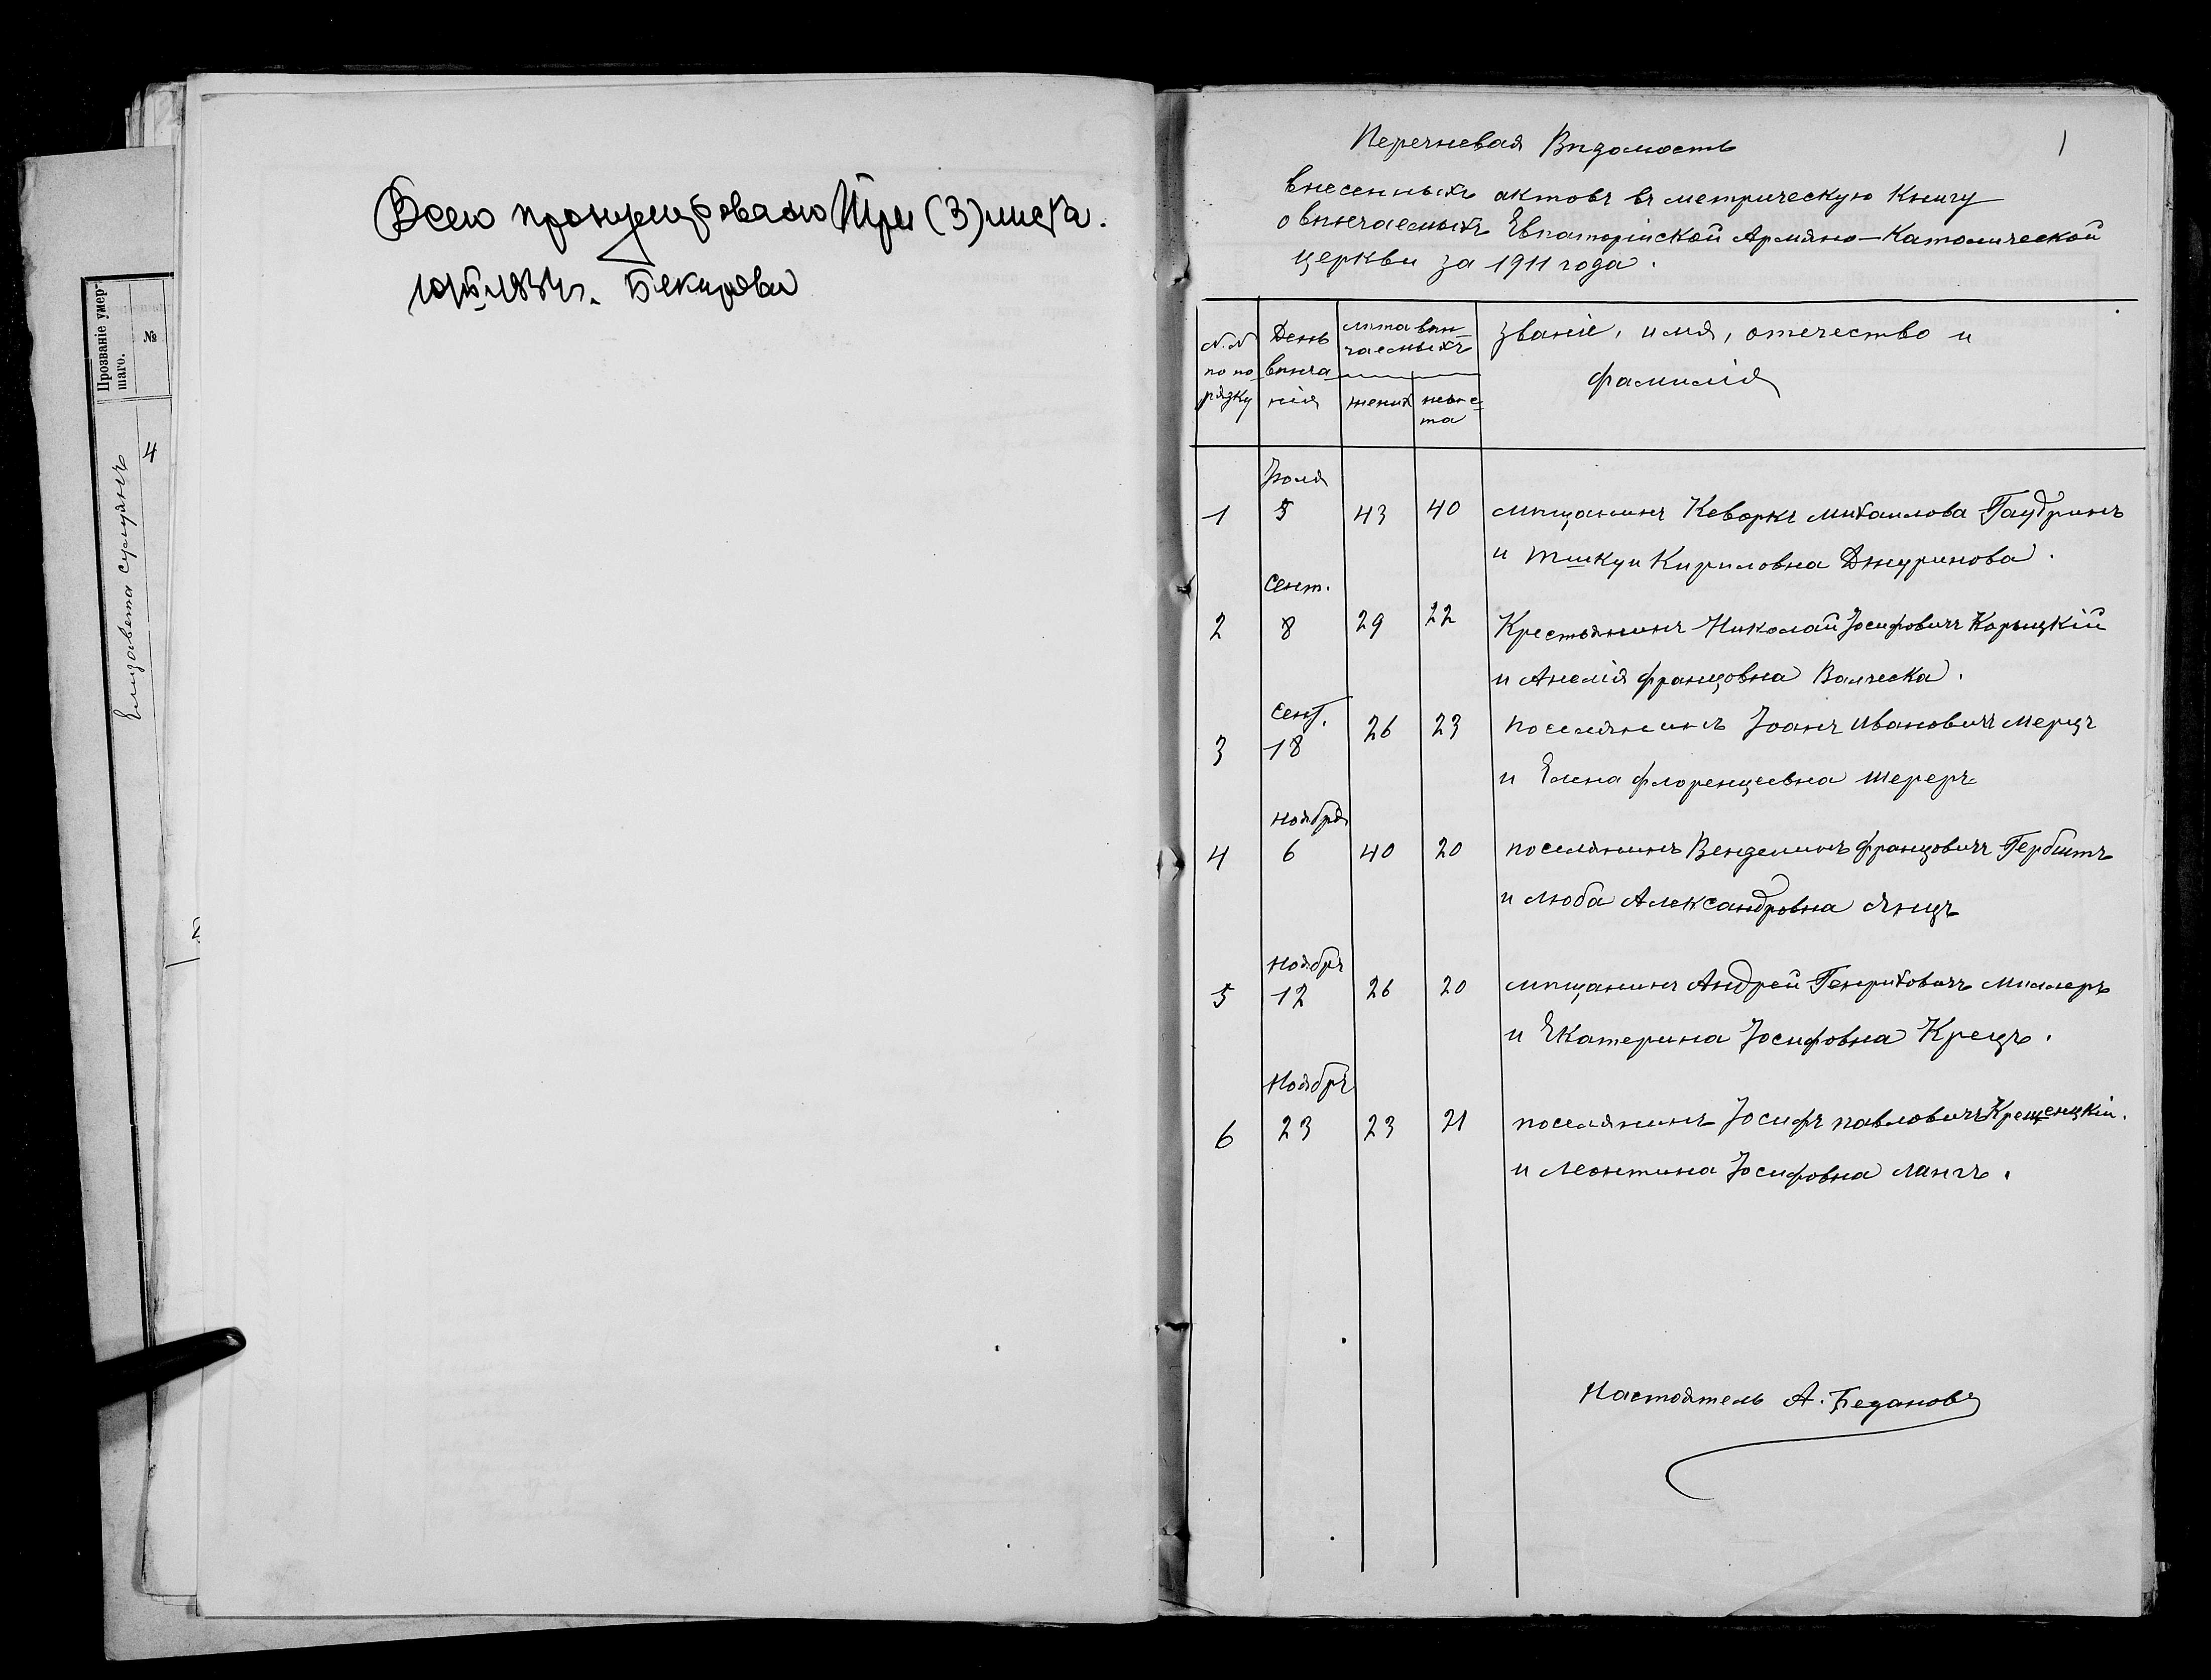 Прозваніе умер-
шаго.
№
4
Елизавета
Всего пронумеровано Три (3) листа.
Бекирова
1
Перечневая Вѣдомость
внесенныхъ актовъ въ метрическую Книгу
о вѣнчаемыхъ Евпаторійской Армяно-Католической
церкви за 1911 года.
№.№ по порядку
День вѣнчанія
лѣта вѣнчаемыхъ
жених
невѣста
званіе, имя, отечество и
фамилія
Іюля
1 5 43 40 мѣщанинъ Кеворкъ Михаилова Гаудринъ
и Тшкуи Кириловна Джуринова.
Сент.
2 8 29 22 Крестьянинъ Николай Іосифовичъ Корыцкій
и Анелія Францовна Валческа.
Сент.
3 18 26 23 поселянинъ Іоанъ Ивановичъ Мерцъ
и Елена Флоренцевна Шереръ
ноября
4 6 40 20 поселянинъ Венделинъ Францовичъ Гербштъ
и Люба Александровна Янцъ
Ноябрь
5 12 26 20 мѣщанинъ Андрей Генриховичъ Миллеръ
и Екатерина Іосифовна Крецъ.
Ноябрь
6 23 23 21 поселянинъ Іосифъ Павловичъ Крещенцкій.
и Леонтина Іосифовна Лангъ.
Настоятель А. Беданов